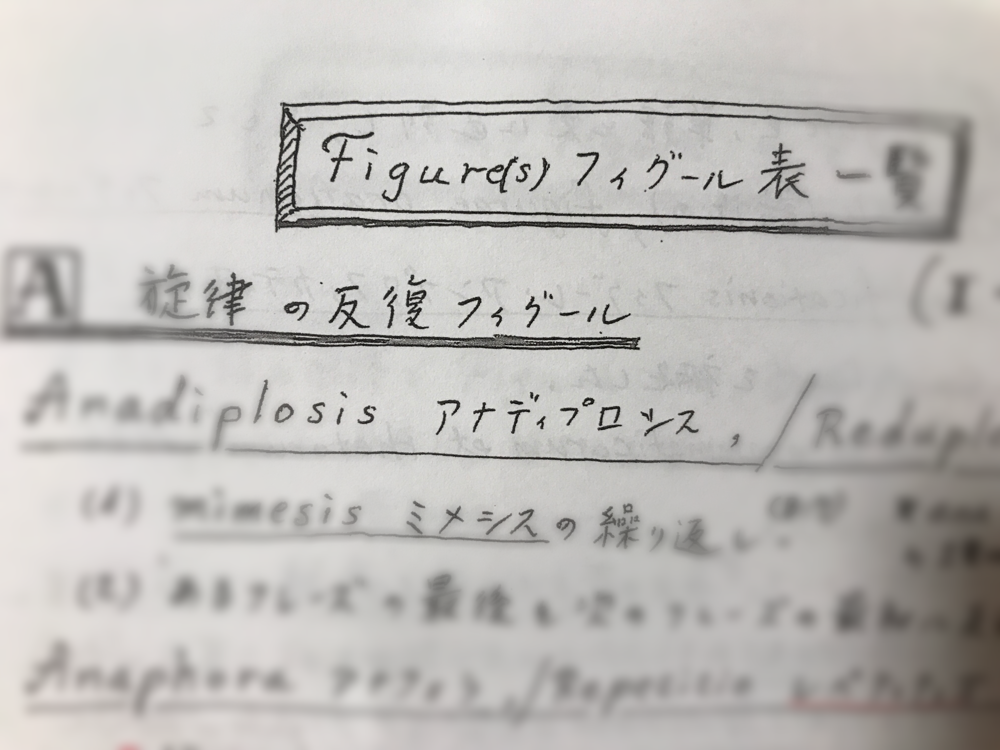 Figure(s) フィグール 表 一覧
A 旋律 の 反復 フィグール
Anadiplosis アナディプロシス, /
(1) mimesis ミメシスの 繰り返し.
(2) あるフレーズの最後を次のフレーズの最初
Anaphora アナフォラ, / Repetitio